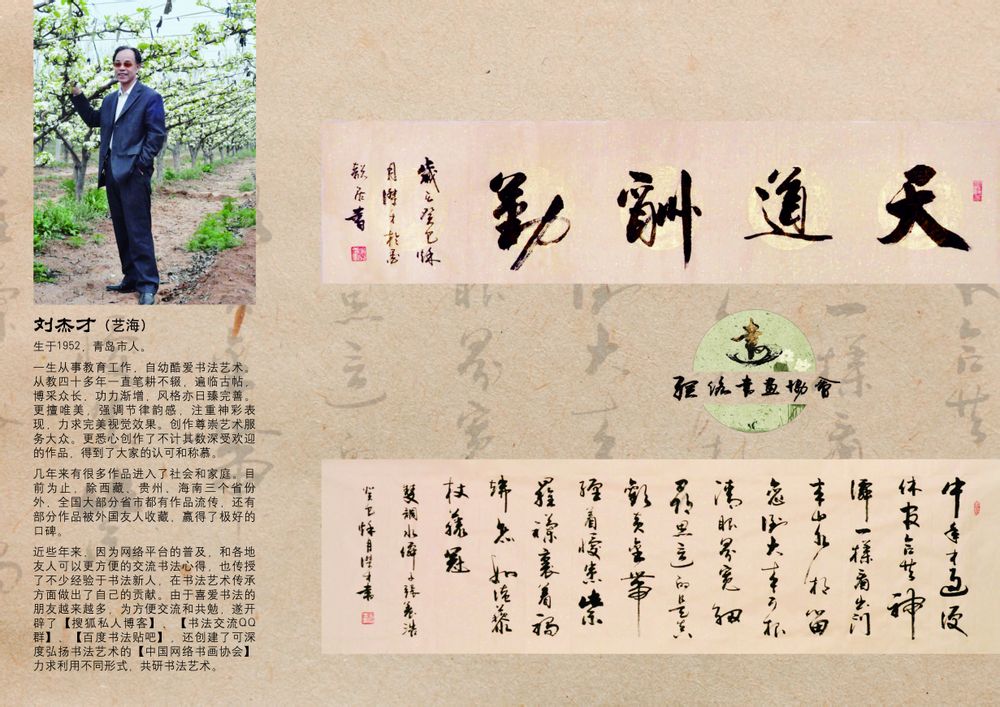 刘杰才（艺海）
生于1952，青岛市人。
一生从事教育工作，自幼酷爱书法艺术。
从教四十多年一直笔耕不辍，遍临古帖，
博采众长，功力渐增，风格亦日臻完善。
更擅唯美，强调节律韵感，注重神彩表
现，力求完美视觉效果。创作尊崇艺术服
务大众。更悉心创作了不计其数深受欢迎
的作品，得到了大家的认可和称慕。
几年来有很多作品进入了社会和家庭。目
前为止，除西藏、贵州、海南三个省份
外，全国大部分省市都有作品流传，还有
部分作品被外国友人收藏，赢得了极好的
口碑。
近些年来，因为网络平台的普及，和各地
友人可以更方便的交流书法心得，也传授
了不少经验于书法新人，在书法艺术传承
方面做出了自己的贡献。由于喜爱书法的
朋友越来越多，为方便交流和共勉，遂开
辟了【搜狐私人博客】、【书法交流QQ
群】、【百度书法贴吧】，还创建了可深
度弘扬书法艺术的【中国网络书画协会】
力求利用不同形式，共研书法艺术。
天道酬勤
歲在癸巳秋
書畫協會
中年才過便
休官合共神
僊一樣看出門
青山水相留
戀倒大來可
滿眼界寬細
尋思這的是真
歡黃金帶
纏著憂患紫
羅襴裹着禍
杖藜冠
雙調水僊子張養浩
癸巳秋月傑才書